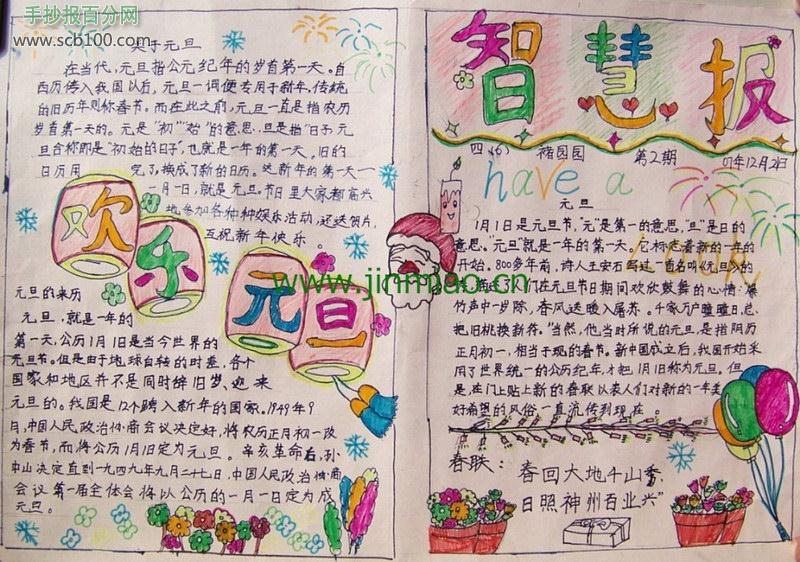 手抄报百分网
www.scb100.com
关于元旦
在当代,元旦指公元纪年的岁首第一天。自
西历传入我国以后,元旦一词便专用于新年,传统
的旧历年则称春节。而在此之前,元旦一直是指农历
岁首第一天的。元是“初”“始”的意思,旦是指“日子”元
旦合称即是“初始的日子”,也就是一年的第一天。旧的
日历用完了,换成了新的日历。迭新年的第一天一
一月一日,就是元旦。节日里大家都高兴
地参加各种种娱乐活动,还送贺片,
互祝新年快乐。
欢乐元旦
元旦的来历
元旦,就是一年的
第一天,公历1月1日是当今世界的
元旦节。但是由于地球自转的时差,各个
国家和地区并不是同时辞旧岁、迎来
元旦的。我国是12个跨入新年的国家。1949年9
月,中国人民政治协商会议决定好,将农历正月初一改
为春节,而将公历1月1日定为元旦。辛亥革命后,孙
中山决定直到一九四九年九月二十七日,中国人民政治协商
会议第一届全体会将以公历的一月一日定为成
元旦。
智慧报
四(6) 褚园园 第2期 07年12月2日
have a
元旦
1月1日是元旦节,“元”是第一的意思,“旦”是日的
意思。“元旦”就是一年的第一天。它标志着新的一年的
开始。800多年前,诗人王安石写过一首名叫《元旦》的
们在元旦节日期间欢欣鼓舞的心情:爆
竹声中一岁除,春风送暖入屠苏。千家万户曈曈日,总
把旧桃换新符。”当然,他当时所说的元旦,是指阴历
正月初一,相当于现的春节。新中国成立后,我国开始采
用了世界统一的公历纪年,才把1月1日称为元旦。但
是,在门上贴上新的春联以表人们对新的一年美
好希望的风俗一直流传到现在。
www.jinmiao.cn
春联:春回大地千山秀,
日照神州百业兴”